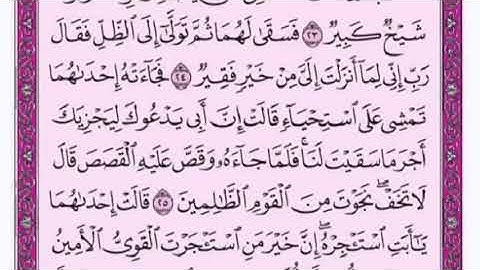 شَيْخٌ كَبِيرٌ ٢٣ فَسَقَىٰ لَهُمَا ثُمَّ تَوَلَّىٰٓ إِلَى ٱلظِّلِّ فَقَالَ
رَبِّ إِنِّى لِمَآ أَنزَلْتَ إِلَىَّ مِنْ خَيْرٍ فَقِيرٌ ٢٤ فَجَآءَتْهُ إِحْدَىٰهُمَا
تَمْشِى عَلَى ٱسْتِحْيَآءٍ قَالَتْ إِنَّ أَبِى يَدْعُوكَ لِيَجْزِيَكَ
أَجْرَ مَا سَقَيْتَ لَنَا ۚ فَلَمَّا جَآءَهُۥ وَقَصَّ عَلَيْهِ ٱلْقَصَصَ قَالَ
لَا تَخَفْ ۖ نَجَوْتَ مِنَ ٱلْقَوْمِ ٱلظَّـٰلِمِينَ ٢٥ قَالَتْ إِحْدَىٰهُمَا
يَـٰٓأَبَتِ ٱسْتَـْٔجِرْهُ ۖ إِنَّ خَيْرَ مَنِ ٱسْتَـْٔجَرْتَ ٱلْقَوِىُّ ٱلْأَمِينُ